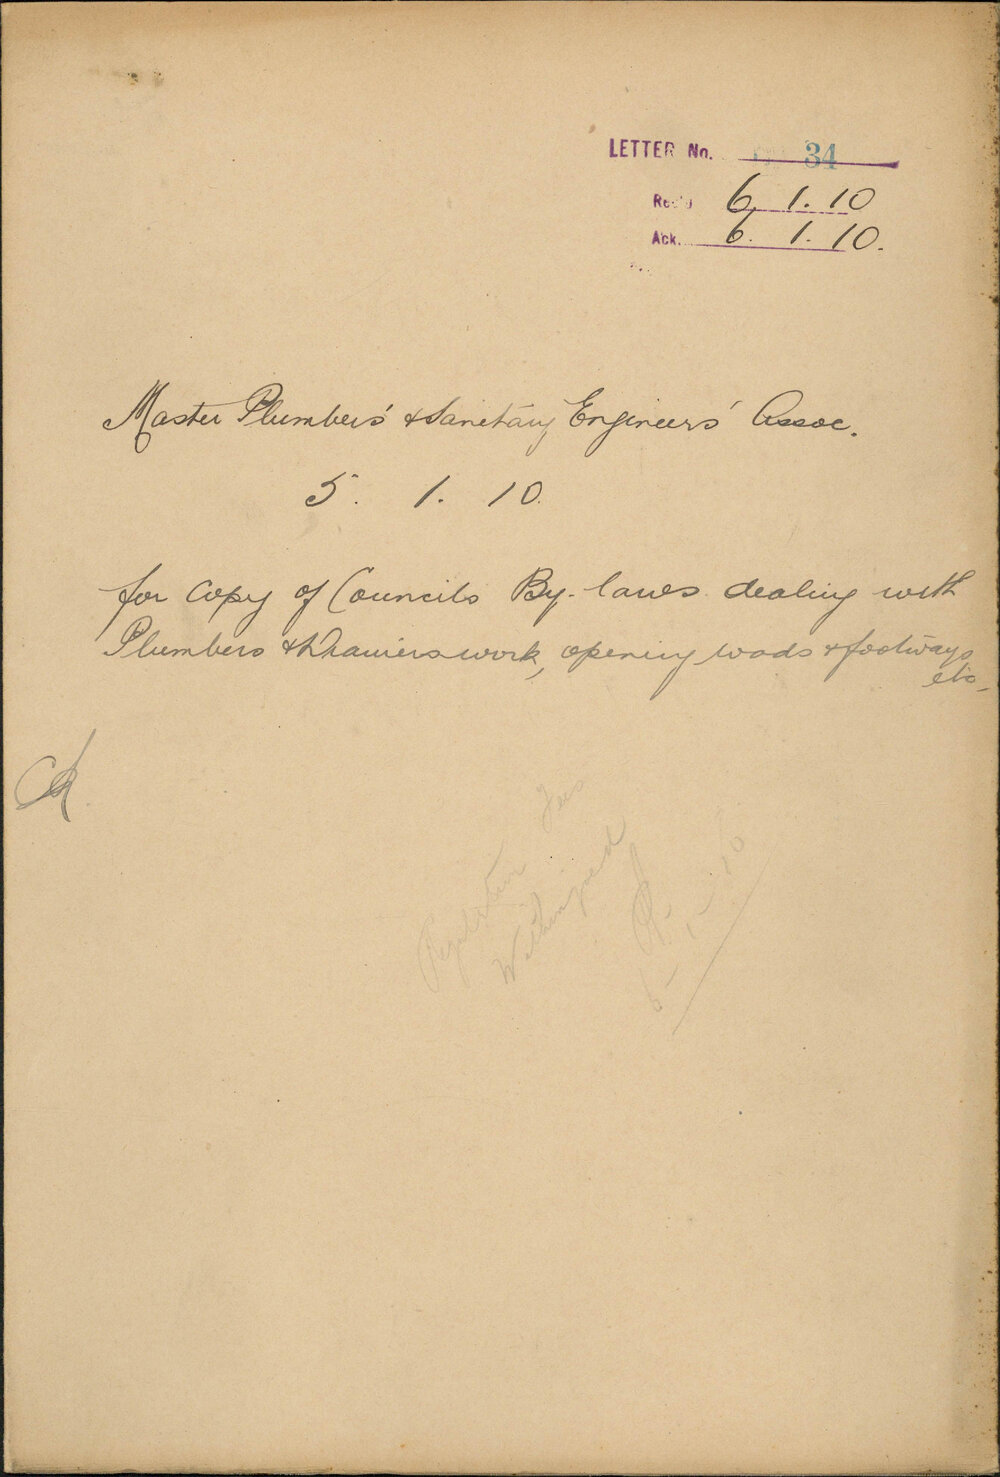 LETTER No. 34
Rec'd 6. 1. 10
Ack. 6. 1. 10.
Master Plumbers' & Sanitary Engineers' Assoc.
5. 1. 10.
for copy of Councils By-laws dealing with
Plumbers & Drainers work, opening roads & footways
etc.
6-1-10